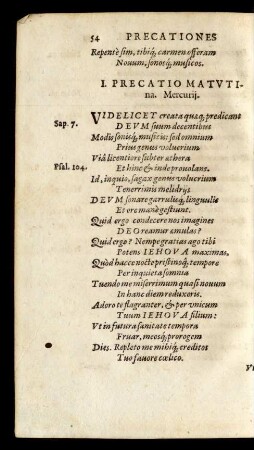 54 PRECATIONES
Repentè sim, tibiq́; carmen offeram
Nouum, sonosq́; musicos.
I. PRECATIO MATVTI-
na. Mercurij.
VIDELICET creata quæq; prædicant
Sap. 7. DEVM suum decentibus
Modis sonisq́; musicis: sed omnium
Prius genus volucrium
Viâ licentiore subter æthera
Psal. 104. Et hinc & inde prouolans.
Id, inquio, sagax genus volucrium
Tenerrimis melidrijs
DEVM sonare garrulisq́; linguulis
Et ore manè gestiunt.
Quid ergo condecere nos imagines
DEO reamur æmulas?
Quid ergo? Nempe gratias ago tibi
Potens IEHOVA maximas,
Quòd hacce nocte pristinoq́; tempore
Per inquieta somnia
Tuendo me miserrimum quasi nouum
In hanc diem reduxeris.
Adoro te flagranter, & per vnicum
Tuum IEHOVA filium:
Vt in futura sanitate tempora
Fruar, meosq́; prorogem
Dies. Repleto me mihiq́; creditos
Tuo fauore cœlico.